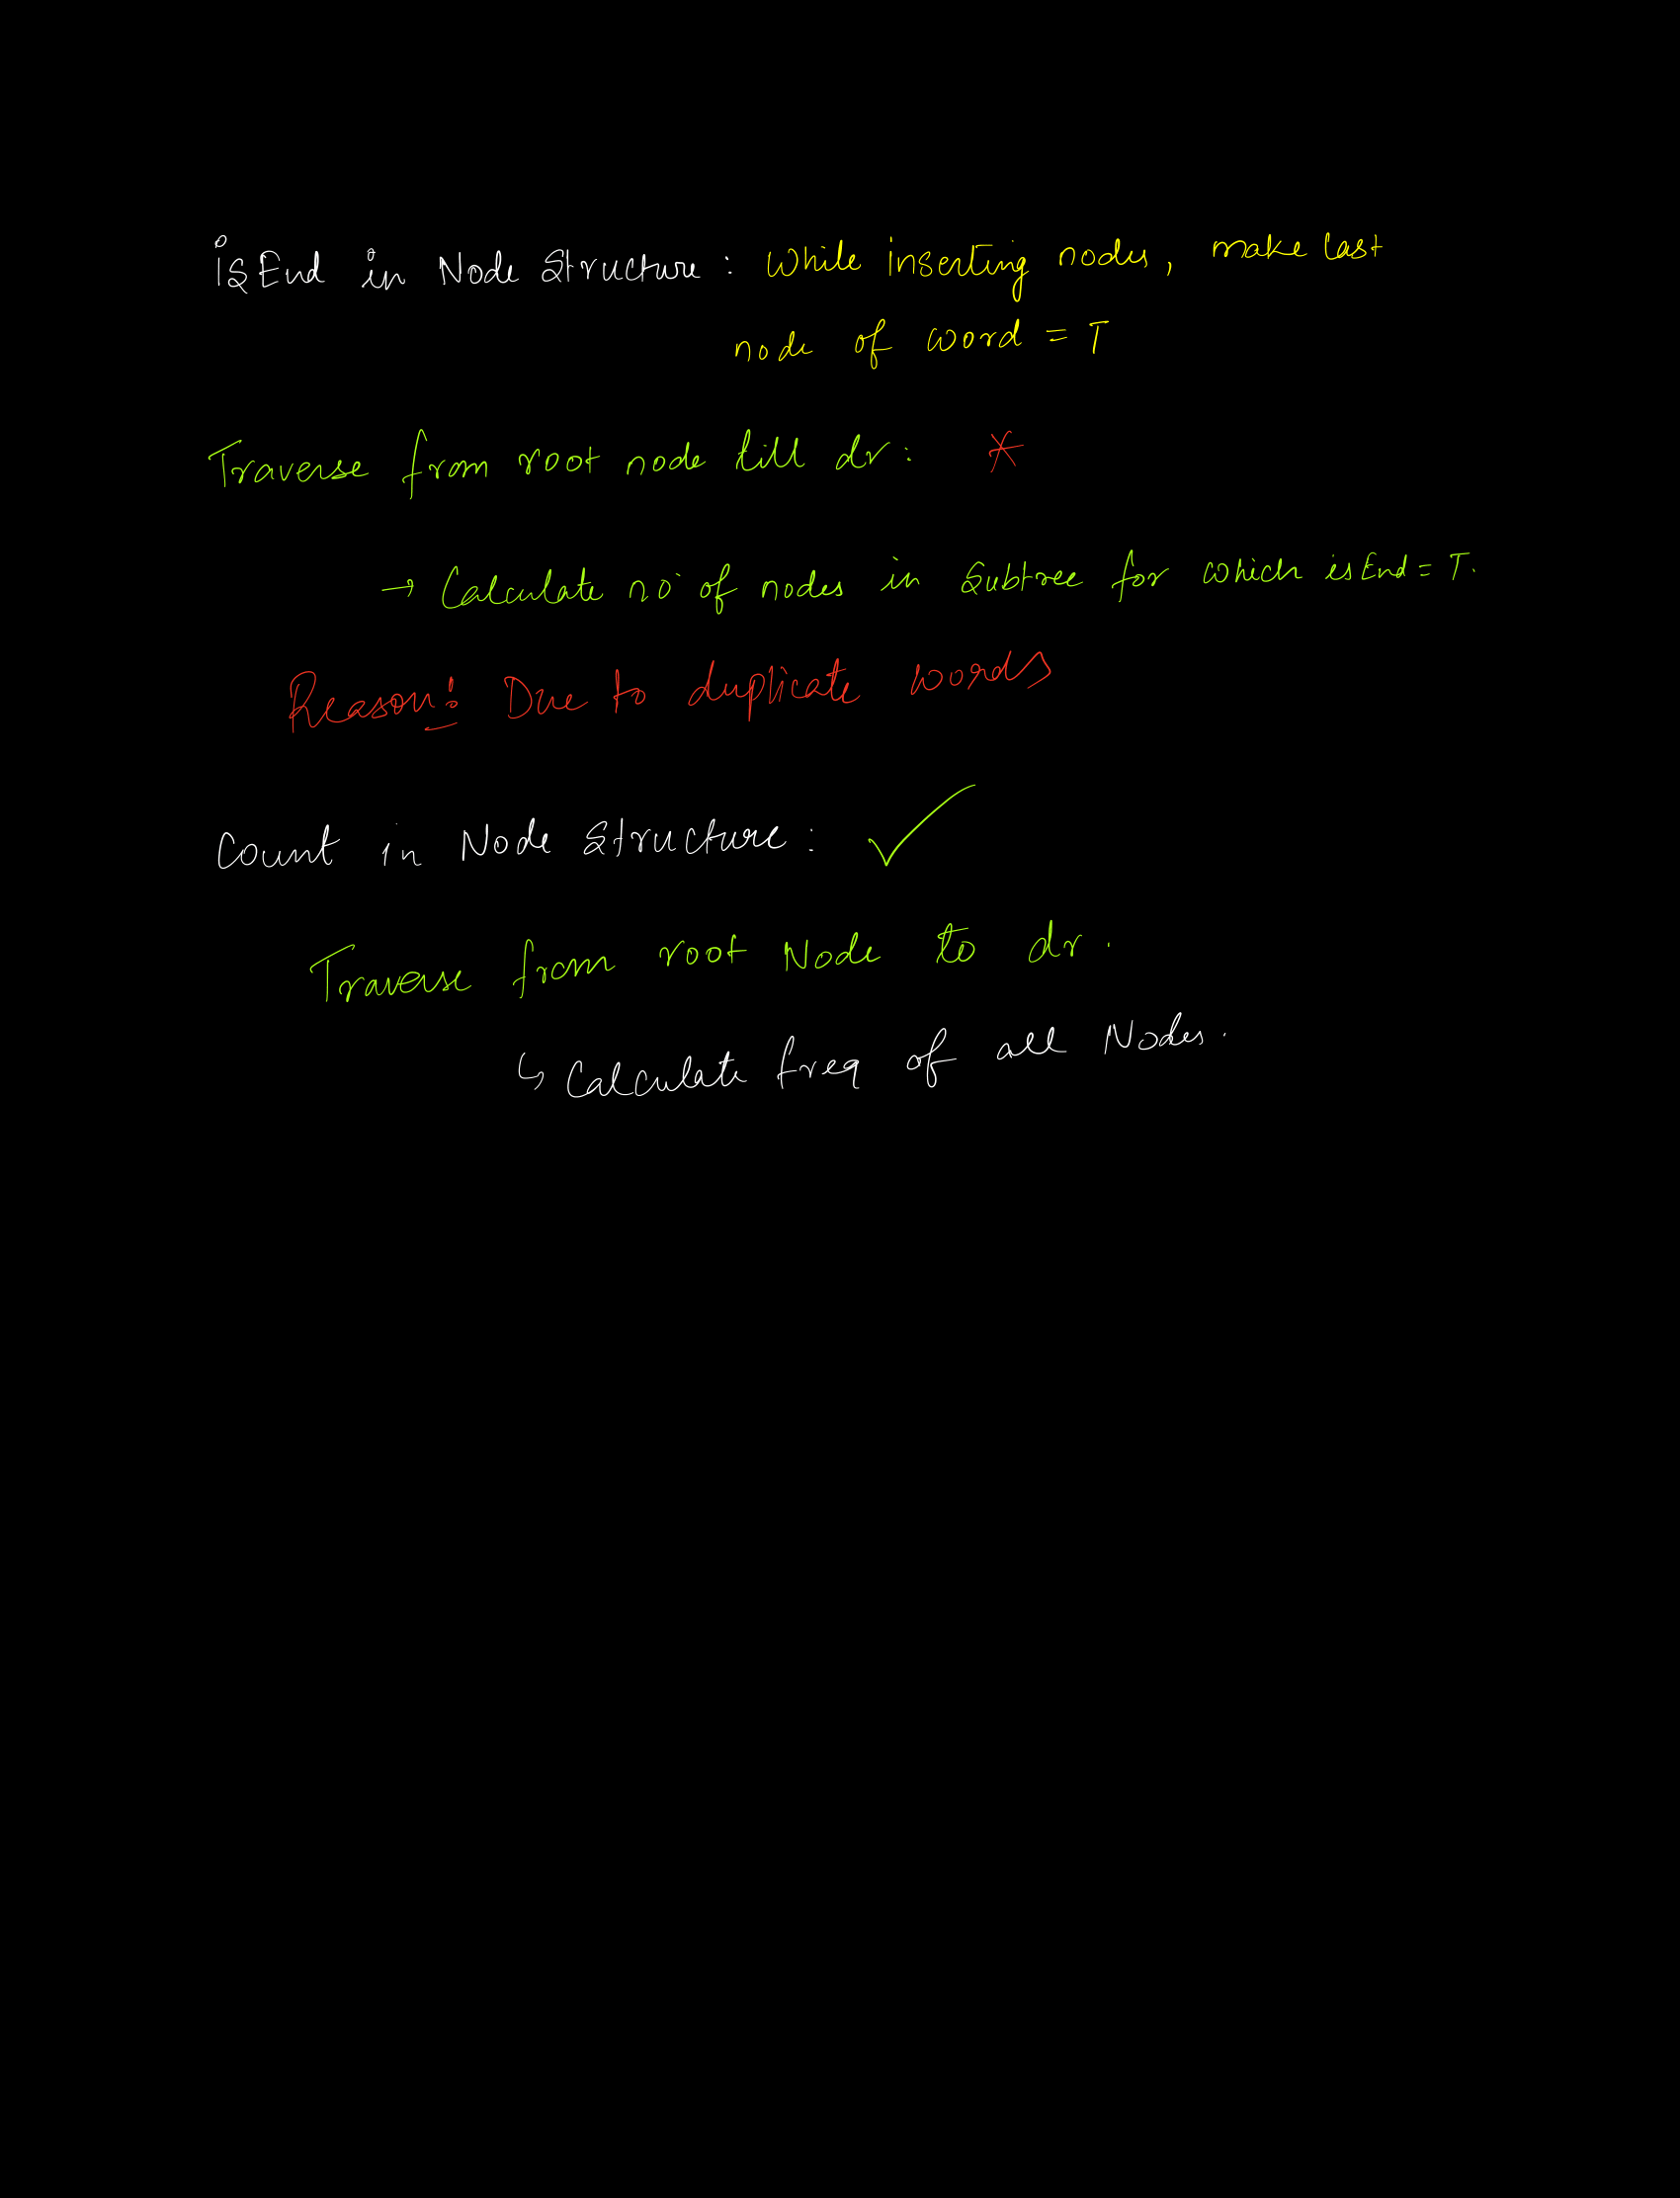 isEnd in Node Structure : While inserting nodes, make last
node of word = T
Traverse from root node till dr :
→ Calculate no of nodes in Subtree for which isEnd = T.
Reason: Due to duplicate words
Count in Node Structure : ✓
Traverse from root Node to dr.
↳ Calculate freq of all Nodes.